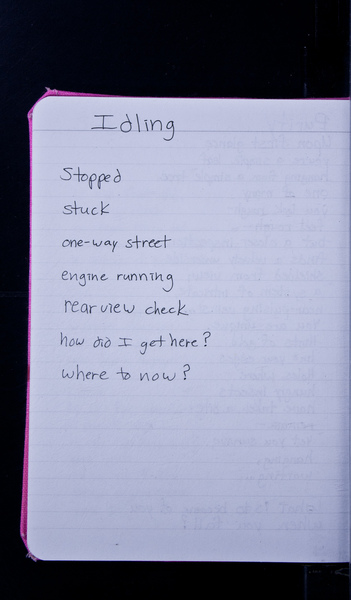 Idling
Stopped
stuck
one-way street
engine running
rearview check
how did I get here?
where to now?